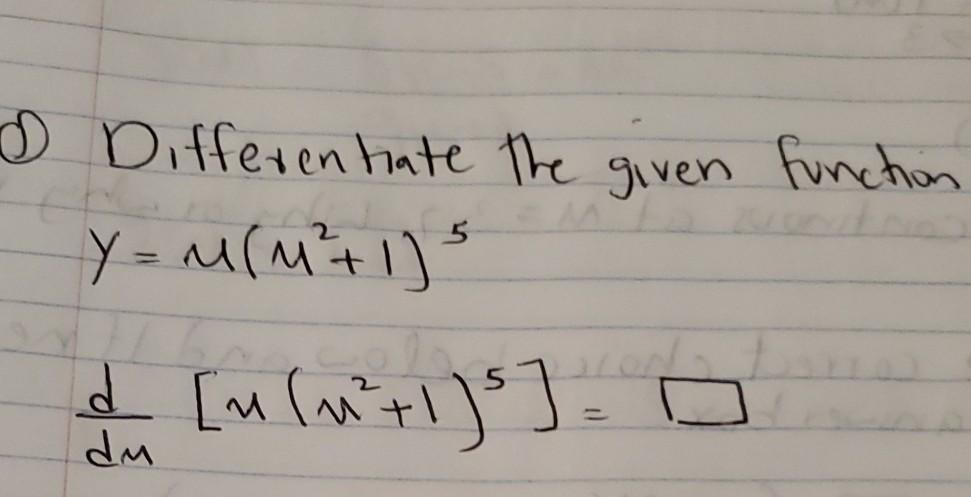 ① Differentiate the given function
y = x(x²+1)⁵
d/dx [x(x²+1)⁵] = □